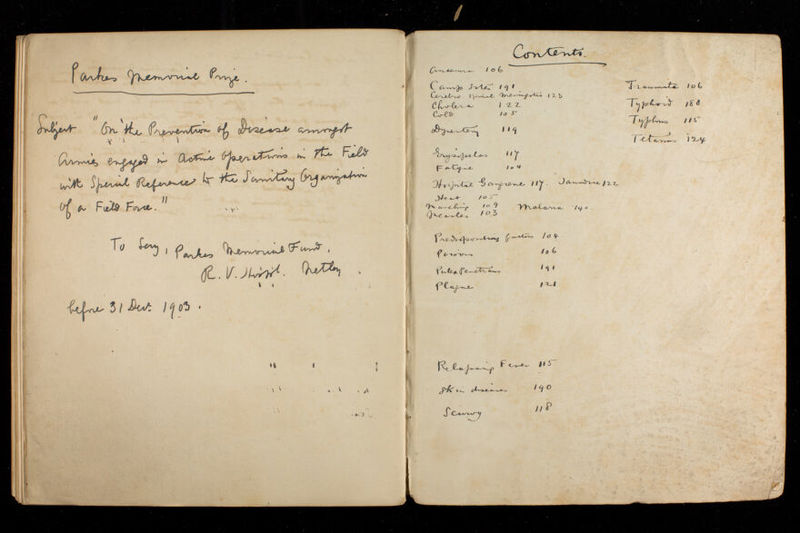 Parkes Memorial Prize.
Subject "On the Prevention of Disease amongst
Armies engaged in active operations in the Field
with Special Reference to the Sanitary Organization
of a Field Force."
To Secy, Parkes Memorial Fund,
R. V. Hospl. Netley.
before 31 Decr. 1903.
Contents.
Anaemia 106
191
Cerebro Spinal Meningitis 123
Cholera 122
Cold 105
Dysentery 119
Erysipelas 117
Fatigue 104
Hospital Gangrene 117. Jaundice 122
Heat 105
Marching 109 Malaria 140
Measles 103
Predisposing factors 104
Poisons 106
Pulex Penetrans 191
Plague 121
Relapsing Fever 115
Skin diseases 190
Scurvy 118
Traumata 106
Typhoid 180
Typhus 115
Tetanus 124